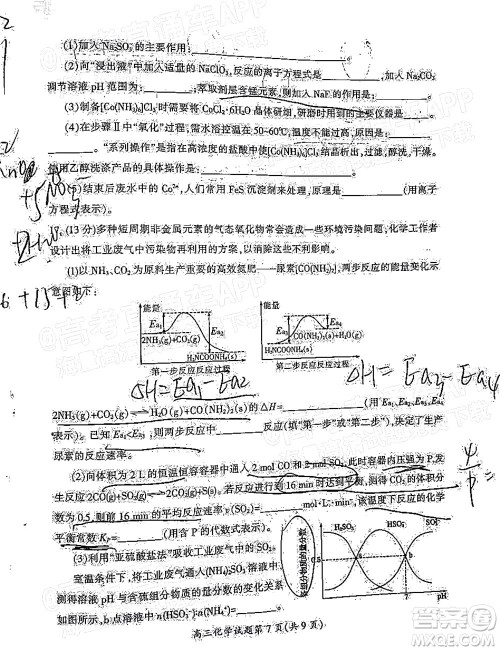 (1)加入Na₂SO₃的主要作用:
(2)向“浸出液”中加入适量的NaClO₃,反应的离子方程式是 ,加入Na₂CO₃
调节溶液pH范围为: ;萃取剂层含锰元素,则加入NaF的作用为: 。
(3)制备[Co(NH₃)₆]Cl₃时需将CoCl₂·6H₂O晶体研细,研磨时用到的仪器为: 。
(4)在步骤Ⅱ中“氧化”过程,需水浴控温在50~60℃,温度不能过高,原因是:
。“系列操作”是指在高浓度的盐酸中使[Co(NH₃)₆]Cl₃结晶析出,过滤,醇洗,干燥。
使用乙醇洗涤产品的具体操作是: 。
(5)结束后废水中的Co²⁺,人们常用FeS沉淀剂来处理,原因是 (用离子
方程式表示)。
17.(13分)多种短周期非金属元素的气态氧化物常会造成一些环境污染问题,化学工作者
设计出将工业废气中污染物再利用的方案,以消除这些不利影响。
(1)以NH₃、CO₂为原料生产重要的高效氮肥——尿素[CO(NH₂)₂],两步反应的能量变化示
意图如下:
能量 Ea₁ Ea₂ 2NH₃(g)+CO₂(g) H₂NCOONH₄(s) 第一步反应反应过程
能量 Ea₃ Ea₄ CO(NH₂)₂(s)+H₂O(g) H₂NCOONH₄(s) 第二步反应反应过程
ΔH=Ea₁-Ea₂ ΔH=Ea₃-Ea₄
2NH₃(g)+CO₂(g) H₂O(g)+CO(NH₂)₂(s)的ΔH= (用Ea₁、Ea₂、Ea₃、Ea₄
表示)。已知Ea₁<Ea₃,则两步反应中 反应(填“第一步”或“第二步”),决定了生产
尿素的反应速率。
(2)向体积为2 L的恒温恒容容器中通入2 mol CO和2 mol SO₂,此时容器内压强为P,发
生反应2CO(g)+SO₂(g) 2CO₂(g)+S(s)。若反应进行到16 min时达到平衡,测得CO₂的体积分
数为0.5,则前16 min的平均反应速率v(SO₂)= mol·L⁻¹·min⁻¹,该温度下反应的化学
平衡常数Kₚ= (用含P的代数式表示)。
(3)利用“亚硫酸盐法”吸收工业废气中的SO₂。
室温条件下,将工业废气通入(NH₄)₂SO₃溶液中,
测得溶液pH与含硫组分物质的量分数的变化关系
如图所示,b点溶液中n(HSO₃⁻):n(NH₄⁺)=
各组分物质的量分数 0.5 HSO₃⁻ a b 7 pH
高三化学试题第7页(共9页)